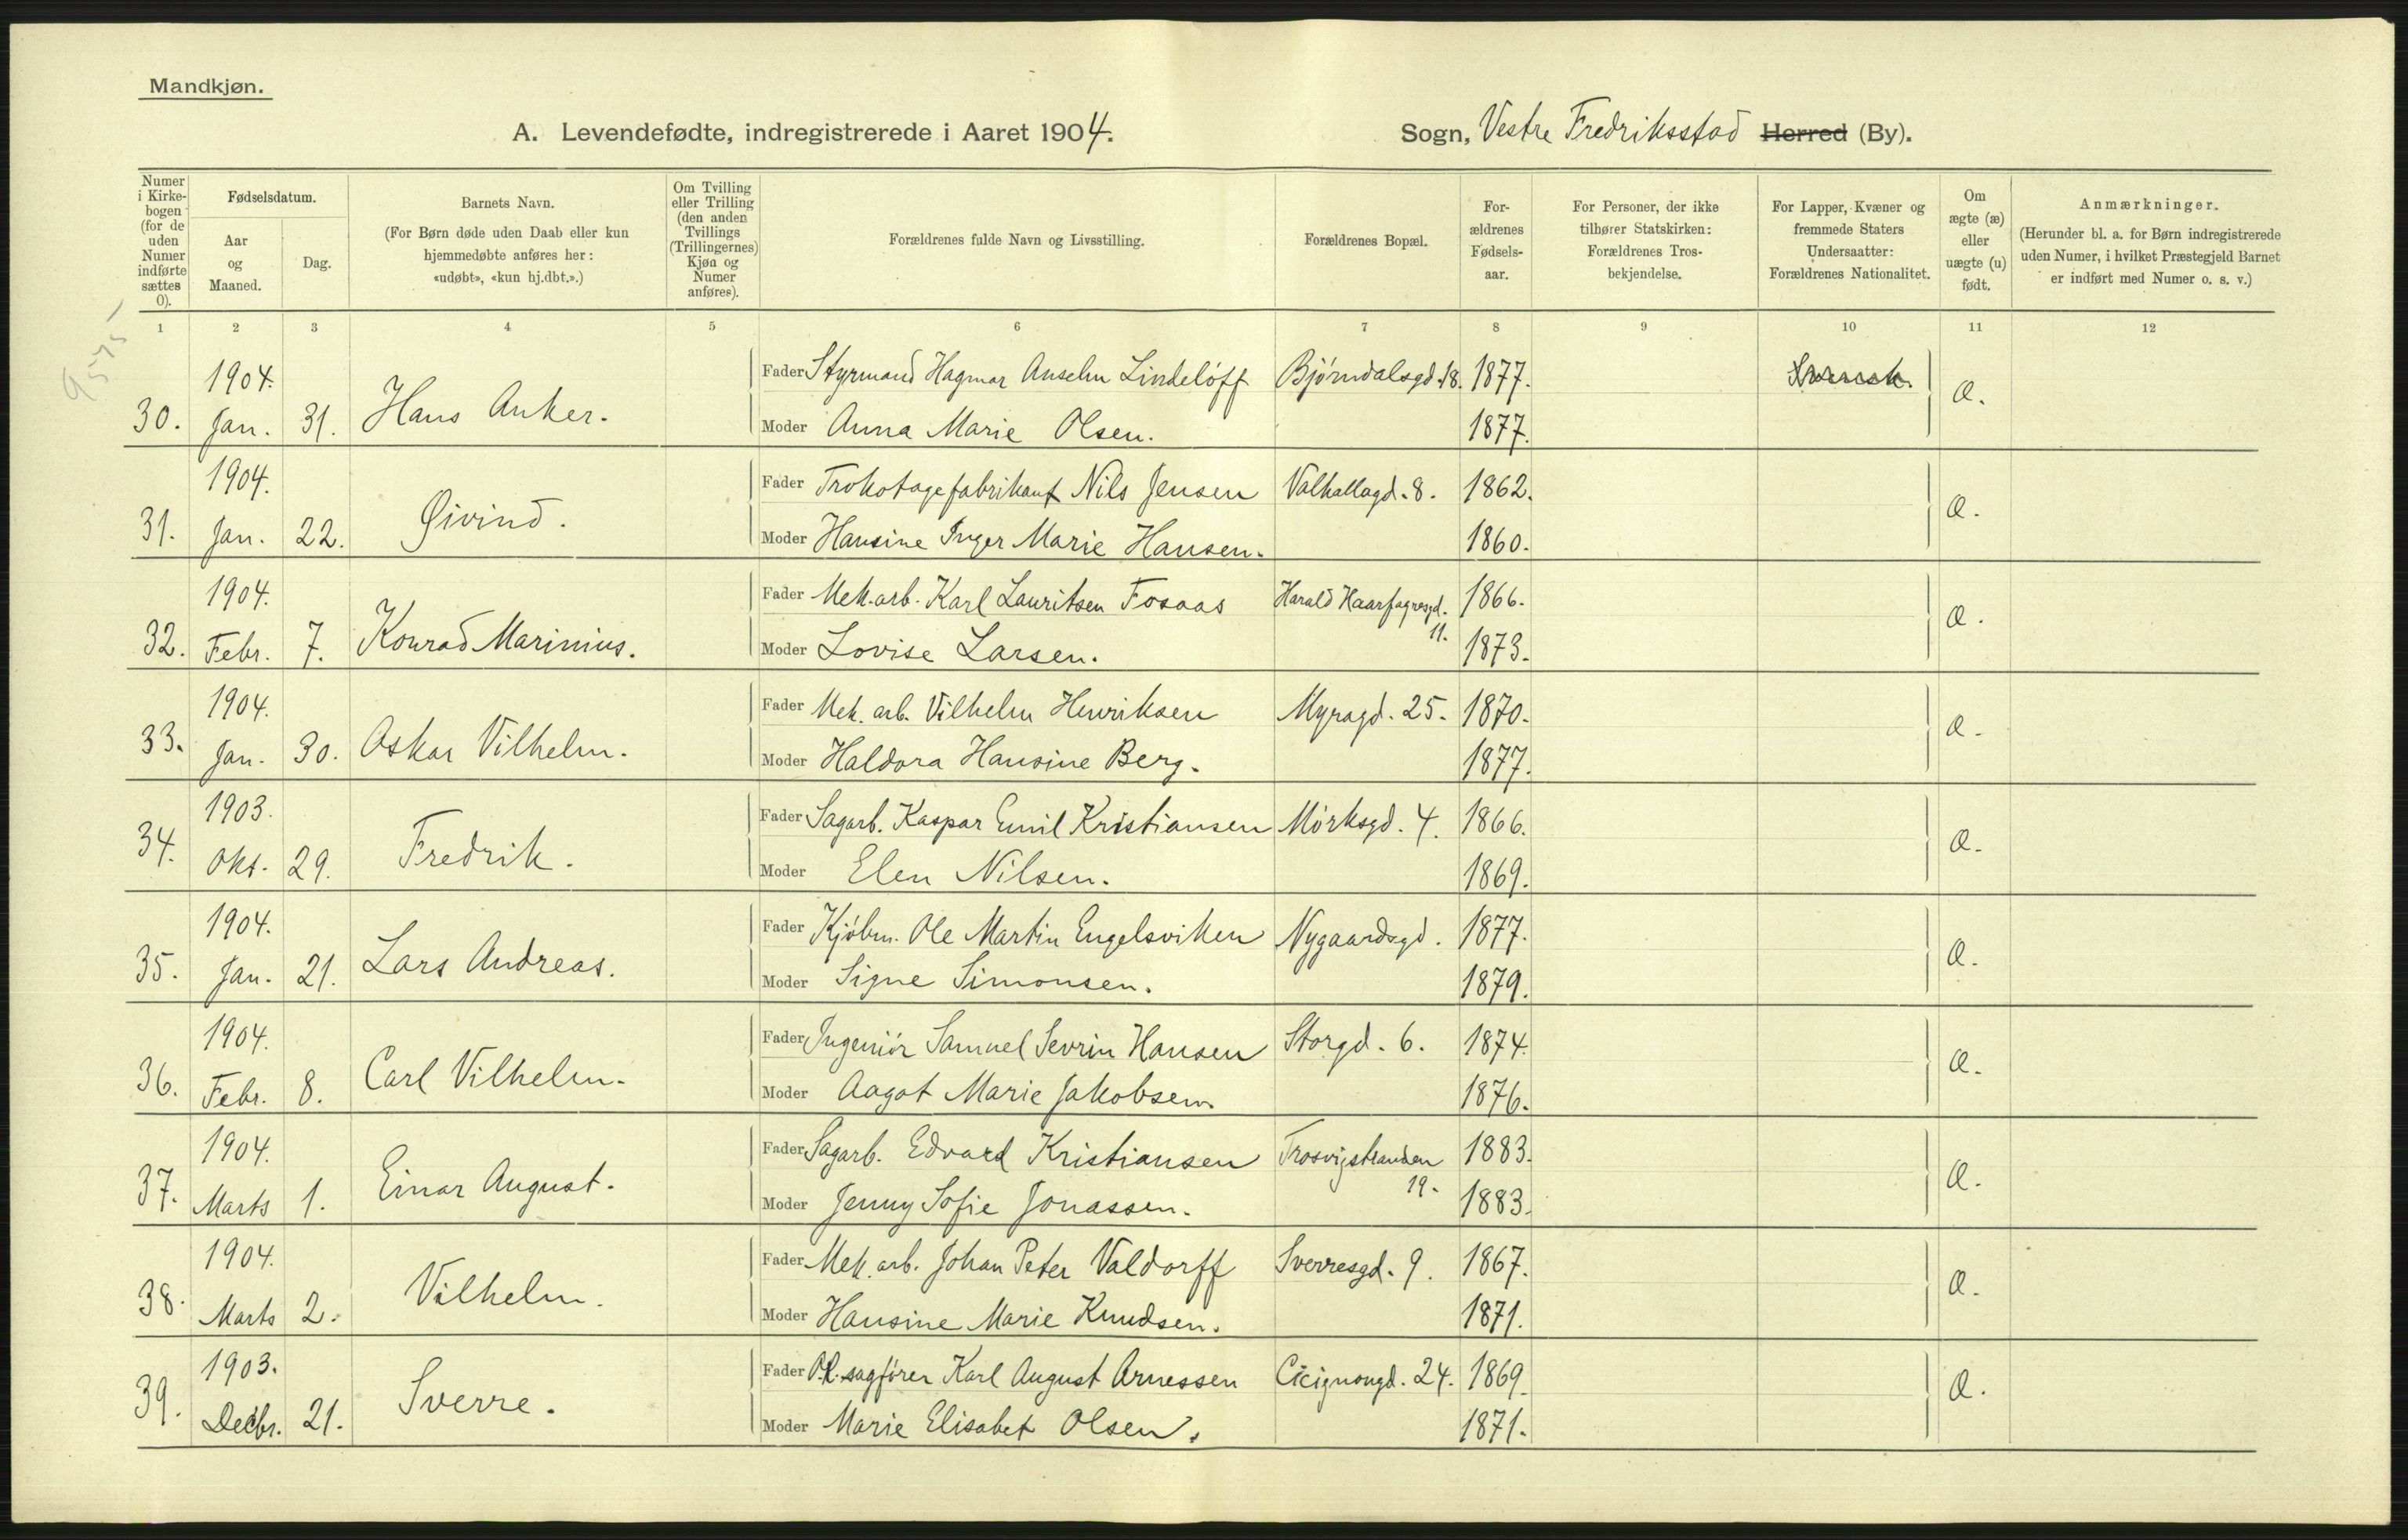 Mandkjøn.
A. Levendefødte, indregistrerede i Aaret 1904. Sogn, Vestre Fredriksstad Herred (By).
Numer i Kirkebogen (for de uden Numer indførte sættes 0).
Fødselsdatum.
Aar og Maaned.
Dag.
Barnets Navn.
(For Børn døde uden Daab eller kun hjemmedøbte anføres her: «udøbt», «kun hj.dbt.».)
Om Tvilling eller Trilling (den anden Tvillings (Trillingernes) Kjøn og Numer anføres).
Forældrenes fulde Navn og Livsstilling.
Forældrenes Bopæl.
Forældrenes Fødselsaar.
For Personer, der ikke tilhører Statskirken: Forældrenes Trosbekjendelse.
For Lapper, Kvæner og fremmede Staters Undersaatter: Forældrenes Nationalitet.
Om ægte (æ) eller uægte (u) født.
Anmærkninger.
(Herunder bl. a. for Børn indregistrerede uden Numer, i hvilket Præstegjeld Barnet er indført med Numer o. s. v.)
1 2 3 4 5 6 7 8 9 10 11 12
30. 1904. Jan. 31. Hans Anker.
Fader Styrmand Hagmar Anselm Lindelöff Bjørndalsgd. 18. 1877. Svensk. Æ.
Moder Anna Marie Olsen. 1877.
31. 1904. Jan. 22. Øivind.
Fader Trokotagefabrikant Nils Jensen Valhallagd. 8. 1862. Æ.
Moder Hansine Inger Marie Hansen. 1860.
32. 1904. Febr. 7. Konrad Marinius.
Fader Mek. arb. Karl Lauritsen Fosaas Harald Haarfagresgd. 11. 1866. Æ.
Moder Lovise Larsen. 1873.
33. 1904. Jan. 30. Oskar Vilhelm.
Fader Mek. arb. Vilhelm Henriksen Myragd. 25. 1870. Æ.
Moder Haldora Hansine Berg. 1877.
34. 1903. Okt. 29. Fredrik.
Fader Sagarb. Kaspar Emil Kristiansen Mørksgd. 4. 1866. Æ.
Moder Elen Nilsen. 1869.
35. 1904. Jan. 21. Lars Andreas.
Fader Kjøbm. Ole Martin Engelsviken Nygaardsgd. 1877. Æ.
Moder Signe Simonsen. 1879.
36. 1904. Febr. 8. Carl Vilhelm.
Fader Ingeniør Samuel Sevrin Hansen Storgd. 6. 1874. Æ.
Moder Aagot Marie Jakobsen. 1876.
37. 1904. Marts 1. Einar August.
Fader Sagarb. Edvard Kristiansen Trosvigstranden 19. 1883. Æ.
Moder Jenny Sofie Jonassen. 1883.
38. 1904. Marts 2. Vilhelm.
Fader Mek. arb. Johan Peter Valdorff Sverresgd. 9. 1867. Æ.
Moder Hansine Marie Knudsen. 1871.
39. 1903. Decbr. 21. Sverre.
Fader O.R. sagfører Karl August Arnessen Cicignongd. 24. 1869. Æ.
Moder Marie Elisabet Olsen. 1871.